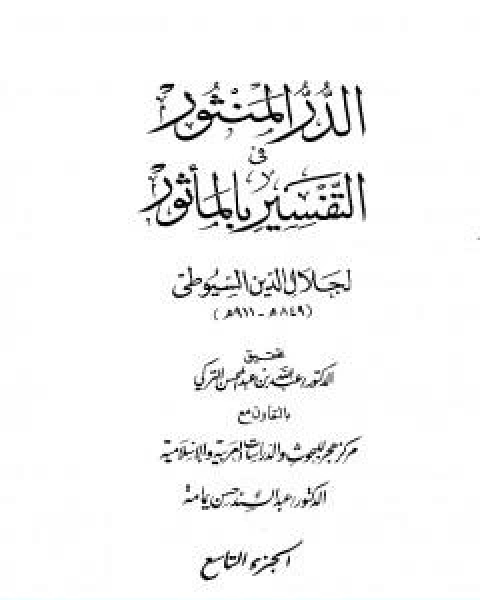 الدُّرُّ المَنْثُور
في
التَّفْسِير بِالمَأْثُور
لجلال الدين السيوطي
(٨٤٩هـ - ٩١١هـ)
تحقيق
الدكتور عبد الله بن عبد المحسن التركي
بالتعاون مع
مركز هجر للبحوث والدراسات العربية والإسلامية
الدكتور عبد السند حسن يمامة
الجزء التاسع